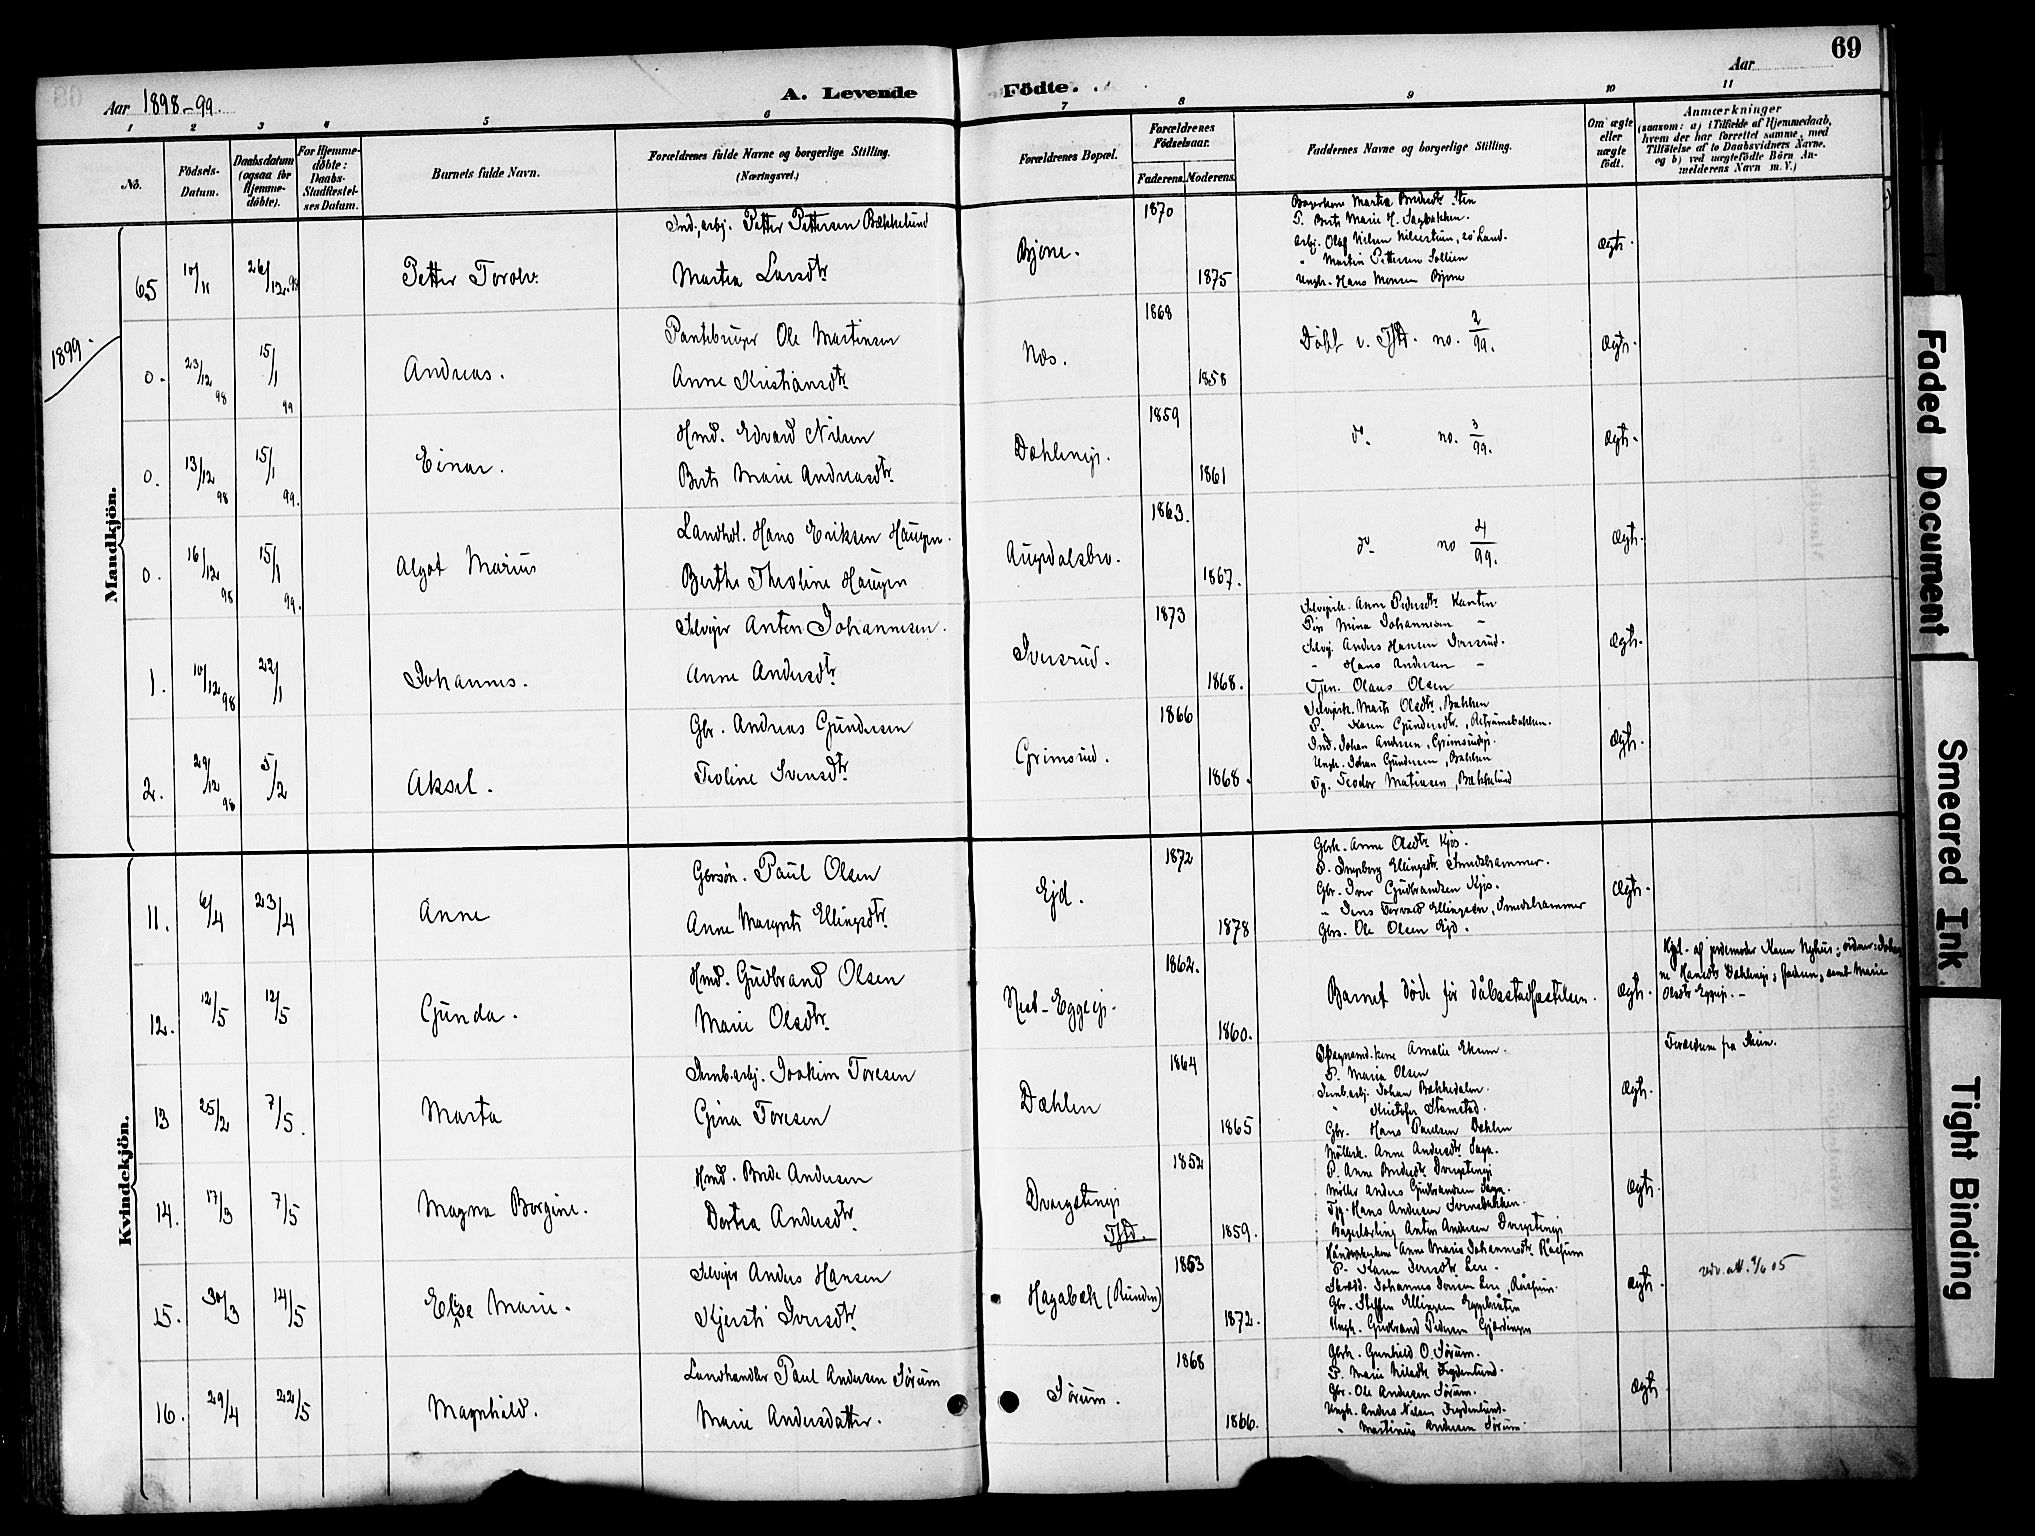 69
Aar 1898-99.
A. Levende Födte.
Aar
1 2 3 4 5 6 7 8 9 10 11
No.
Födsels-Datum.
Daabsdatum (ogsaa for Hjemme-döbte).
For Hjemme-döbte: Daabs-Stadfæstel-ses Datum.
Barnets fulde Navn.
Forældrenes fulde Navne og borgerlige Stilling. (Næringsvei.)
Forældrenes Bopæl.
Forældrenes Födselsaar.
Faderens. Moderens.
Faddernes Navne og borgerlige Stilling.
Om ægte eller uægte födt.
Anmærkninger
(saasom: a) i Tilfælde af Hjemmedaab, hvem der har forrettet samme, med Tilföielse af to Daabsvidners Navne, og b) ved uægtefödte Börn An-melderens Navn m. V.)
Mandkjön.
65 10/11 26/12 98 Petter Torolv.
Ind., arbj. Petter Pettersen Bækkelund
Martea Larsdtr
Bjone. 1870 1875
P. Berte Marie H. Sagbakken.
Arbj. Olaf Nilsen Nilsestuen, so Land.
" Martin Pettersen Sollien
Ungk. Hans Monsen Bjone
ægte.
1899.
0. 23/12 98 15/1 99 Andreas.
Pantebruger Ole Martinsen
Anne Kristiansdtr
Næs. 1868 1858
Döbt i no. 2/99.
ægte.
0. 13/12 98 15/1 99. Einar.
Hmd. Edvard Nilsen
Berte Marie Andreasdtr
Dæhlenejs. 1859 1861
do. no. 3/99.
ægte.
0. 16/12 98 15/1 99. Algot Marius
Landhdl. Hans Eriksen Haugen.
Berthe Theoline Haugen
Augedalsbro. 1863. 1867.
do no 4/99.
ægte.
1. 10/12 98 22/1 Johannes.
Selvejer Anton Johannesen.
Anne Andersdtr
Iversrud. 1873 1868.
Selvejerk. Anne Pedersdtr Karsten
Pige Mina Johannesen "
Selvej. Anders Hansen Iversrud.
" Hans Andersen "
Tjen. Olaus Olsen
ægte.
2. 29/12 98 5/2 Aksel.
Gbr. Andreas Gundersen
Teoline Svensdtr
Grimsrud. 1866 1868.
Selvejerk. Marte Olsdtr, Bakken
P. Karen Gundersdtr,
Ind. Johan Andersen, Grimsrudejs.
Ungk. Johan Gundersen, Bakken
Tj. Teodor Matiesen, Bækkelund
ægte.
Kvindekjön.
11. 6/4 23/4 Anne
Gbrsön. Paul Olsen
Anne Margrete Ellingsdtr
Ejd. 1872 1878
Gbrk. Anne Olsdtr Kjos.
P. Ingeborg Ellingsdtr Smedshammer.
Gbr. Iver Gudbrandsen Kjos.
" Jens Torvald Ellingsen, Smedshammer
Gbrs. Ole Olsen Ejd.
ægte.
12. 12/5 12/5 Gunda.
Hmd. Gudbrand Olsen
Marie Olsdtr.
Ned-Eggeejs. 1862. 1860.
Barnet döde för dåbsstadfæstelsen.
ægte.
Hjd. af jordemoder Karen Nyhus; vidner: Johan-
ne Hansdtr Dæhlenejs, faderen, samt Marie
Olsdtr Eggejs. -
13 25/2 7/5. Marta
Jernb.arbj. Joakim Toresen
Gina Toresen
Dæhlen 1864 1865
kone Amalie Ekum.
P. Maria Olsen
Jernb.arbj. Johan Bækkedalen.
" Kristofer Stamstad.
Gbr. Hans Paulsen Dæhlen
ægte.
Forældrene fra Skien.
14. 17/3 7/5 Magna Borgine.
Hmd. Brede Andersen
Dortea Andersdtr
Dvergstenejs 1852 1859.
Möllerk. Anne Andersdtr Saga.
P. Anne Bredesdtr Dvergstenejs
Möller Anders Gudbrandsen Saga.
Tjg. Hans Andersen Svenebakken.
Bagerlærling Anton Andersen Dvergstenejs
ægte.
15. 30/3 14/5 Elise Marie.
Selvejer Anders Hansen
Kjersti Iversdtr
Hagabæk (Runden) 1863 1872.
Håndverkerkone Anne Marie Johannesdtr Råssum
P. Karen Iversdtr Lee.
Skrædd. Johannes Iversen Lee, Råssum.
Gbr. Steffen Ellingsen Eggebråten
Ungk. Gudbrand Pedersen Gjerdingen
ægte.
vidn. att. 9/6 05
16. 29/4 22/5 Magnhild.
Landhandler Paul Andersen Sörum
Marie Andersdatter.
Sörum. 1868 1866.
Gbrk. Gunhild O. Sörum.
P. Marie Nilsdtr Frydenlund.
Gbr. Ole Andersen Sörum.
Ungk. Anders Nilsen Frydenlund.
" Martinius Andersen Sörum
ægte
Faded Document
Smeared Ink
Tight Binding